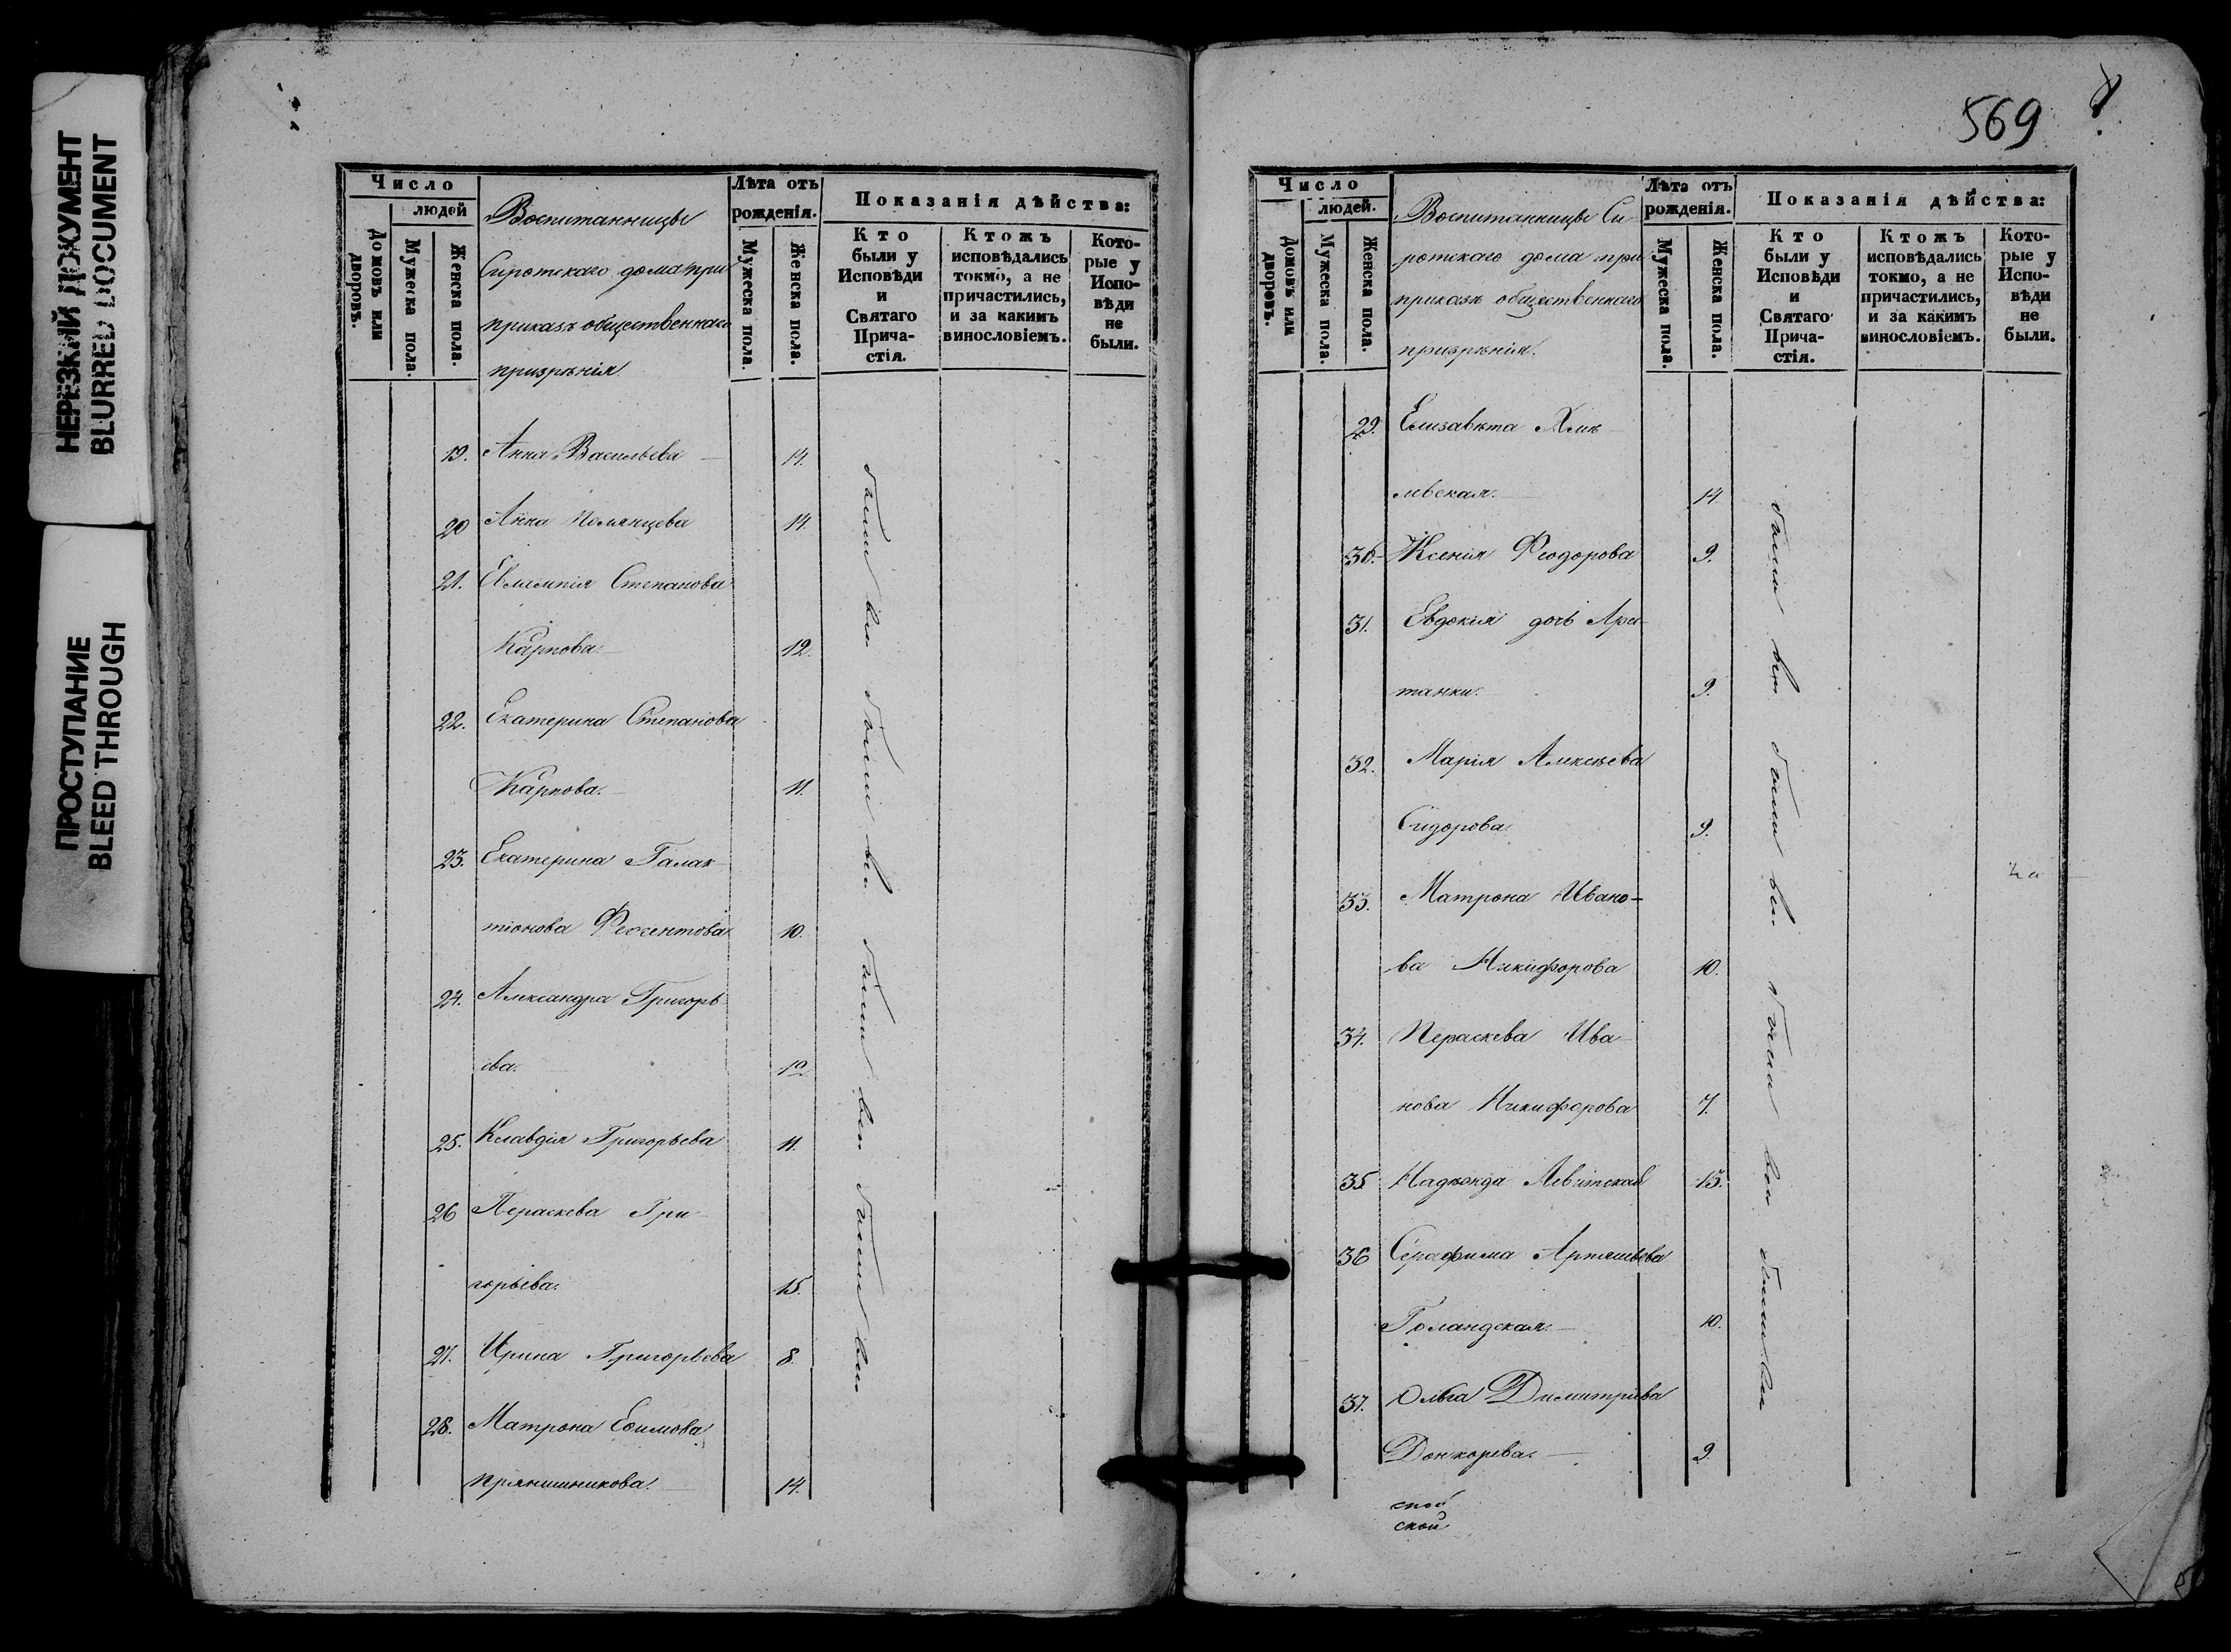 НЕРЕЗКИЙ ДОКУМЕНТ
BLURRED DOCUMENT
ПРОСТУПАНИЕ
BLEED THROUGH
Число
людей
Домовъ или дворовъ.
Мужеска пола.
Женска пола.
Воспитанницы
Сиротскаго дома при
приказѣ общественнаго
призрѣнія.
Лѣта отъ
рожденія.
Мужеска пола.
Женска пола.
Показанія дѣйства:
Кто
были у
Исповѣди
и
Святаго
Прича-
стія.
Ктожъ
исповѣдались
токмо, а не
причастились,
и за какимъ
винословіемъ.
Кото-
рые у
Испо-
вѣди
не
были.
19. Анна Васильева 14.
20 Анна 14
21. Степанова
Карпова. 12.
22. Екатерина Степанова
Карпова. 11.
23. Екатерина Галак
тіонова 10.
24. Александра Григорь
ева. 12
25. Клавдія Григорьева 11.
26 Параскева Гри
горьева. 15.
27. Ирина Григорьева 8.
28. Матрона Ефимова
Прянишникова. 14.
были были были были
569
Число
людей.
Домовъ или дворовъ.
Мужеска пола.
Женска пола.
Воспитанницы Си
ротскаго дома при
приказѣ общественнаго
призрѣнія.
Лѣта отъ
рожденія.
Мужеска пола.
Женска пола.
Показанія дѣйства:
Кто
были у
Исповѣди
и
Святаго
Прича-
стія.
Ктожъ
исповѣдались
токмо, а не
причастились,
и за какимъ
винословіемъ.
Кото-
рые у
Испо-
вѣди
не
были.
29. Елизавета Хмѣ
левская. 14
30. Ксенія Феодорова 9.
31. Евдокія дочь Арес
танки. 9.
32. Марія Алексѣева
Сидорова 9.
33. Матрона Ивано-
ва Никифорова 10.
34. Параскева Ива
нова Никифорова 7.
35 Надежда Левитская 15.
36 Серафима
Голандская. 10.
37. Ольга Димитріева
9.
ской
были были были были